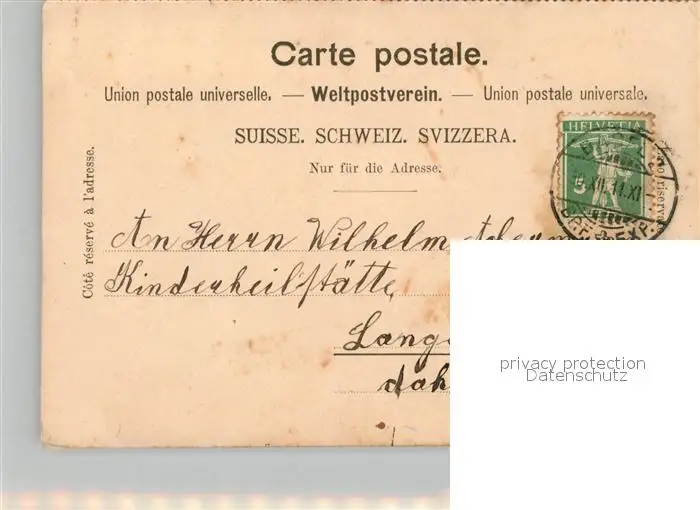 Carte postale.
Union postale universelle. — Weltpostverein. — Union postale universale.
SUISSE. SCHWEIZ. SVIZZERA.
Nur für die Adresse.
Côté réservé à l'adresse.
HELVETIA
5
XII.11.XI
BRF. EXP.
An Herrn Wilhelm
Kinderheilstätte
privacy protection
Datenschutz